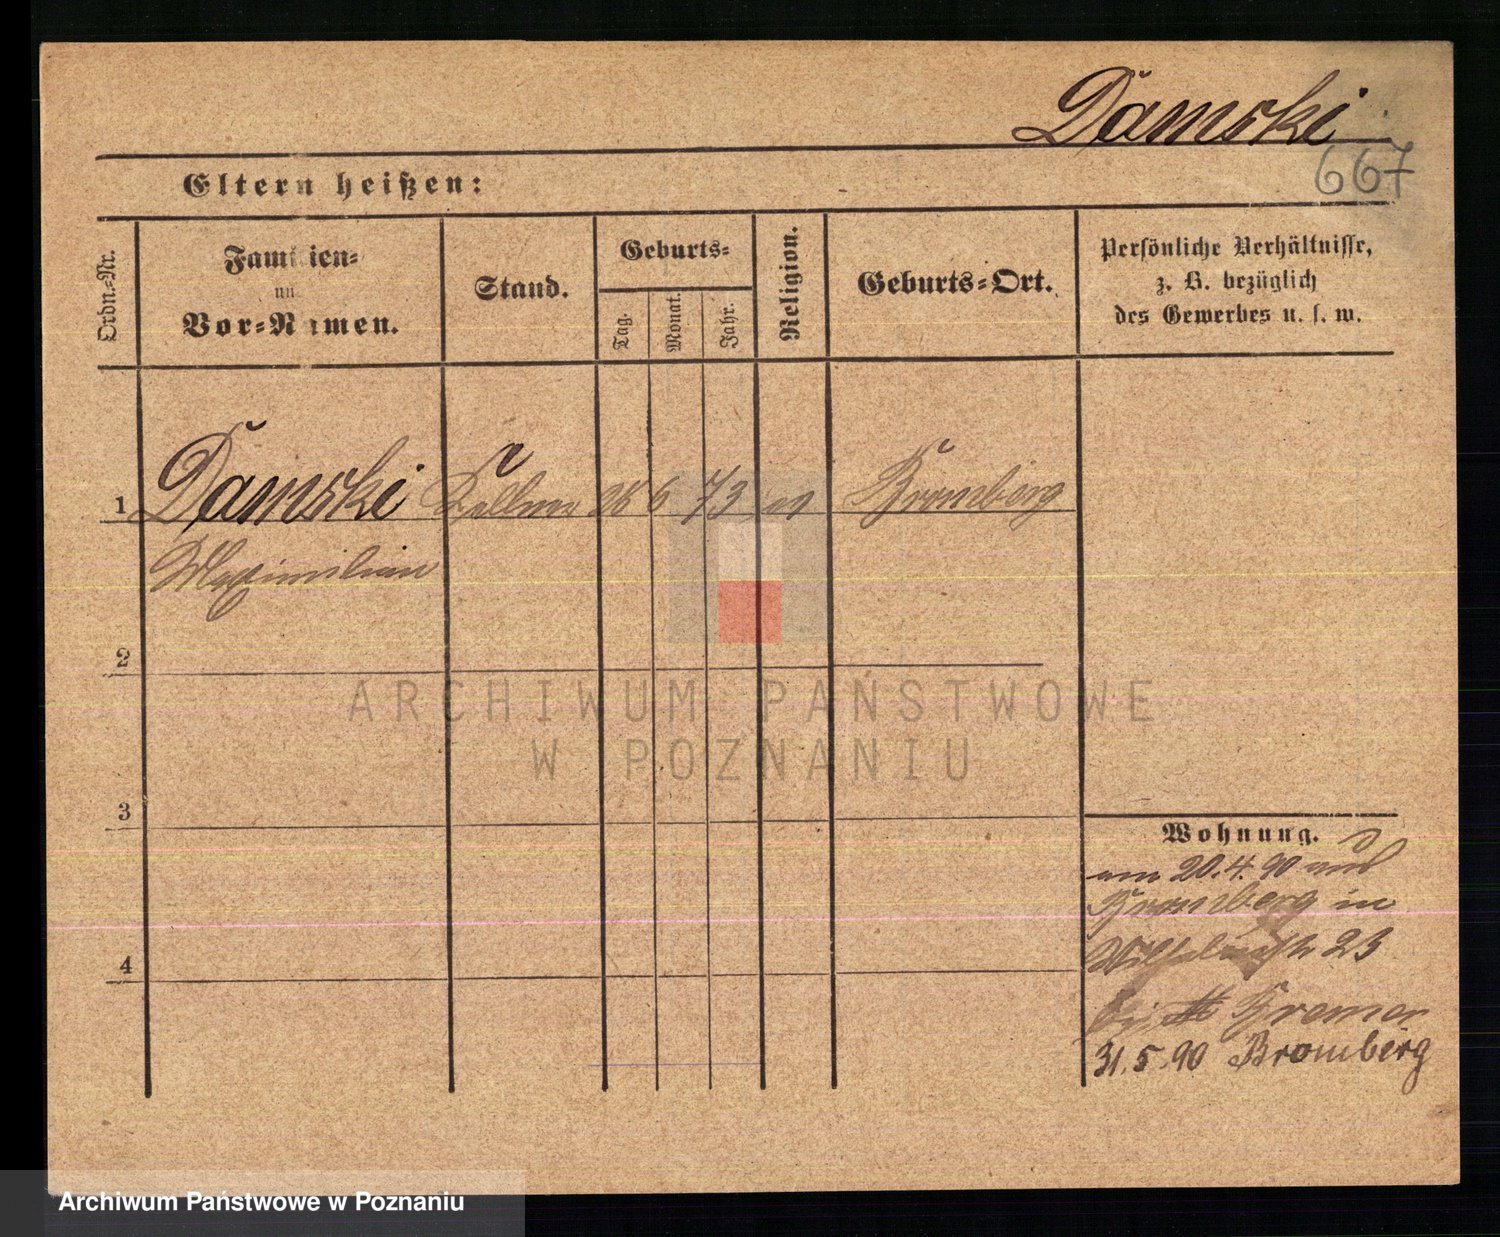 Damski
667
Eltern heißen:
Ordn.-Nr.
Familien-
un
Vor-Namen.
Stand.
Geburts-
Tag.
Monat.
Jahr.
Religion.
Geburts-Ort.
Persönliche Verhältnisse,
z. B. bezüglich
des Gewerbes u. s. w.
1 Damski Kellner 28 6 73 ev Bromberg
Maximilian
2
3
4
Wohnung.
am 20.4.90 aus
Bromberg in
Wilhelmstr 23
bei Kremer
31.5.90 Bromberg
ARCHIWUM PAŃSTWOWE
W POZNANIU
Archiwum Państwowe w Poznaniu